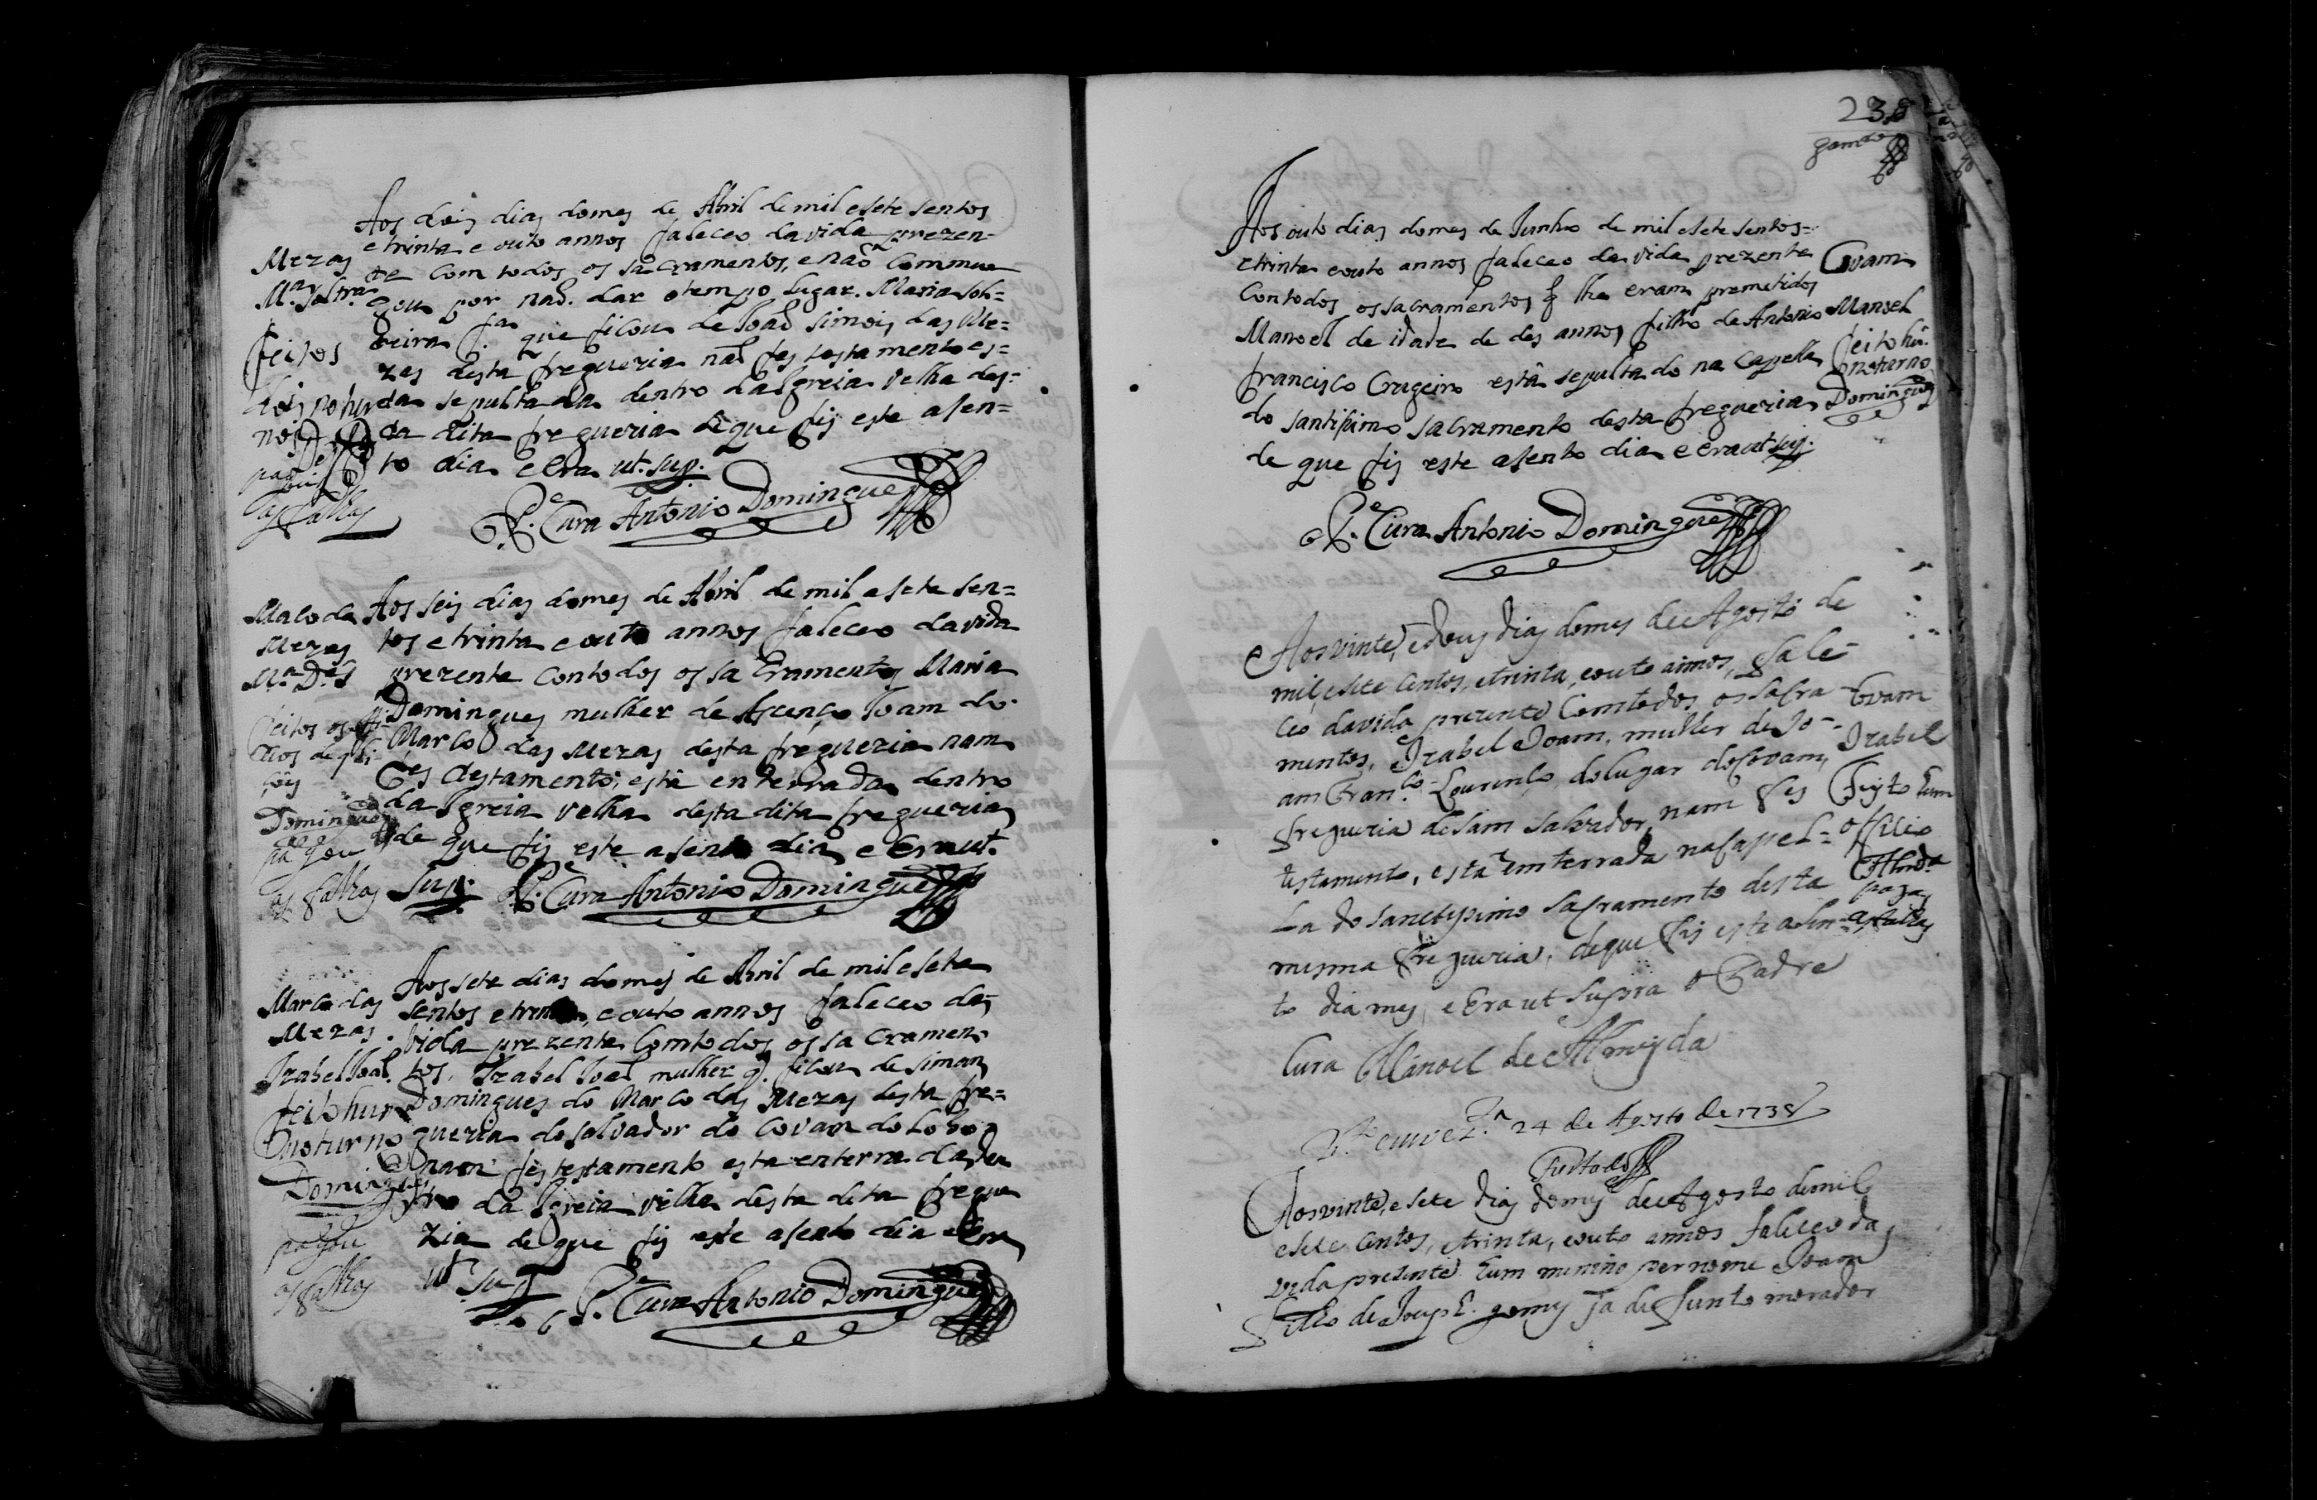 Aos dois dias domes de Abril de mil esete sentos
e trinta e outo annos faleceo davida prezen-
te com todos os sacramentos, e naõ Commun
gou por naõ dar o tempo lugar. Maria Sol-
teira fª que ficou de Joaõ Simois das Me=
zas desta fregueria naõ fes testamento es=
ta sepultada dentro da Igreia velha des=
ta dita fregueria de que fis este asen=
to dia e era ut. sup.
O Pe. Cura Antonio Domingues
Mezas
Mª. soltrª
feitos
dois notur
nos
pagou
as falhas
Aos seis dias domes de Abril de mil e sete sen=
tos e trinta e outo annos faleceo davida
prezente contodos os sacramentos Maria
Domingues mulher de Ascenço Joam do
Marco das Mezas desta freguezia nam
fes testamento, está enterrada dentro
da Igreia velha desta dita fregueria
de que fis este asento dia e era ut.
Sup. O Pe. Cura Antonio Domingues
Marco da
Mezas
Mª. Dgs
feitos os offi
cios
Domingues
pagou
as falhas
Aos sete dias domes de Abril de mil e sete
sentos e trinta, e outo annos faleceo da
vida prezente Comtodos os sa cramen
tos. Izabel Joaõ mulher q. ficou de Simam
Domingues do Marco das Mezas desta fre=
gueria do Salvador do Covam do Lobo
nam fes testamento esta enterra da den
tro da Igreia velha desta dita fregue
zia de que fis este asento dia e Era
ut. sup.
O Pe. Cura Antonio Domingues
Marco das
Mezas.
Izabel Joaõ.
feito hum
noturno
Domingues
pagou
as falhas
238
Aos outo dias domes de Junho de mil e sete sentos=
e trinta e outo annos faleceo da vida prezente
Contodos os sacramentos q lhe eram premetidos
Manoel de idade de des annos filho de Antonio
Francisco Crugeiro está sepultado na Capella
do santisimo sacramento desta fregueria
de que fis este asento dia e era ut sup.
O Pe. Cura Antonio Domingues
Covam
Manoel
feito hũ
noturno
Domingues
Aos vinte, e dous dias domes de Agosto de
mil, e sete centos, e trinta, e outo annos, fale-
ceo davida prezente Com todos os sacra-
mentos, Izabel Joam, mulher de Jo-
am Franco. Lourenço, do lugar do Covam,
fregueria de sam Salvador, nam fes
testamento, está emterrada na Capel=
La do sanctissimo sacramento desta
mesma fregueria, de que fis este asen=
to dia mes, e Era ut supra o Padre
Cura Manoel de Almeyda
Covam
Izabel
Feyto hum
officio
Almda.
paga
as falhas
24 de Agosto de 1738
Furtado
Aos vinte, e sete dias domes de Agosto de mil
e sete centos, e trinta, e outo annos faleceo da
vida prezente hum menino per nome Joam
filho de Joseph. gomes Ja defunto morador